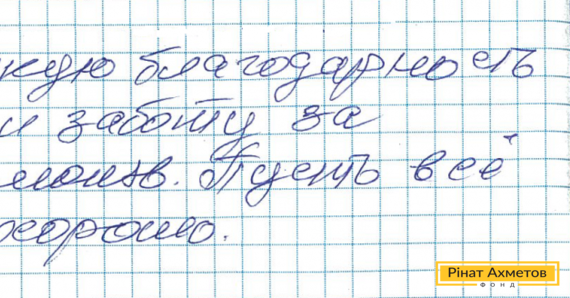 кую благодарность
и заботу за
. Пусть всё
хорошо.
Рінат Ахметов
ФОНД